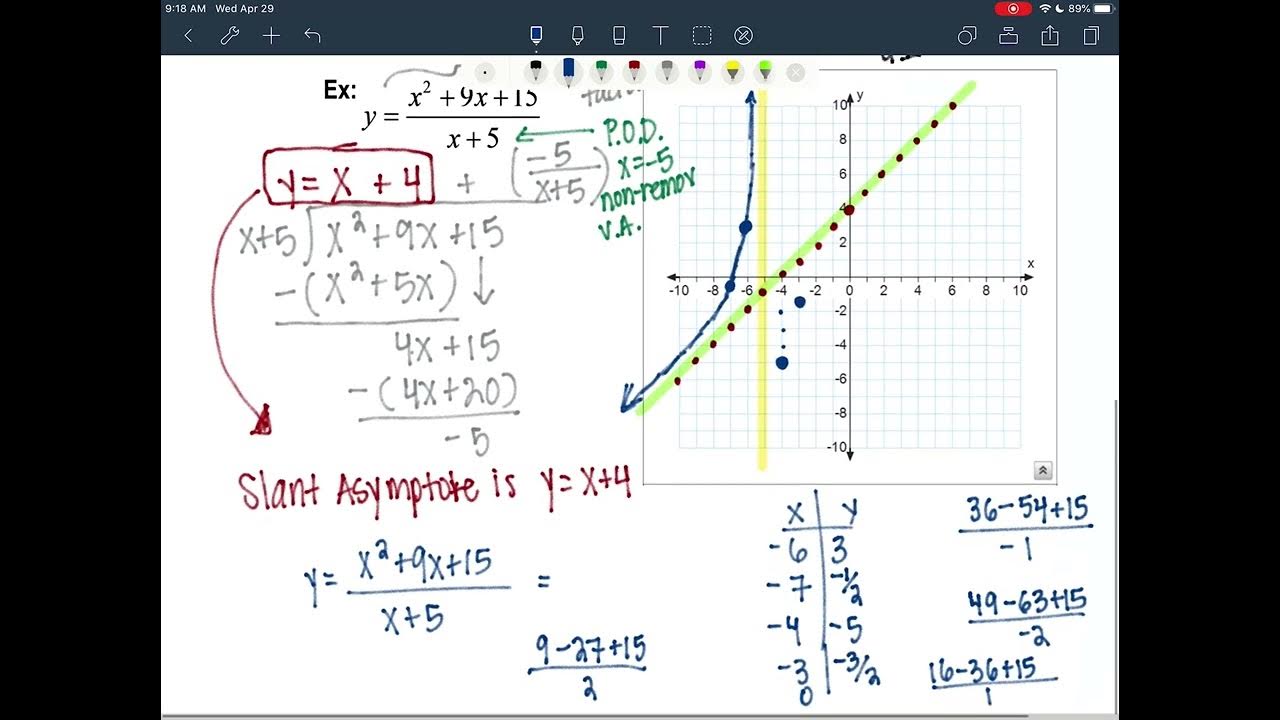 9:18 AM Wed Apr 29
89%
Ex:
y = (x² + 9x + 15)/(x + 5)
P.O.D.
x = -5
non-remov
V.A.
y = x + 4 + (-5/(x+5))
x+5 ) x² + 9x + 15
-(x² + 5x) ↓
4x + 15
-(4x + 20)
-5
Slant Asymptote is y = x+4
y = (x² + 9x + 15)/(x + 5) =
(9 - 27 + 15)/2
y
10
8
6
4
2
x
-10 -8 -6 -4 -2 0 2 4 6 8 10
-2
-4
-6
-8
-10
x | y
-6 | 3
-7 | -1/2
-4 | -5
-3 | -3/2
0
(36 - 54 + 15)/-1
(49 - 63 + 15)/-2
(16 - 36 + 15)/1